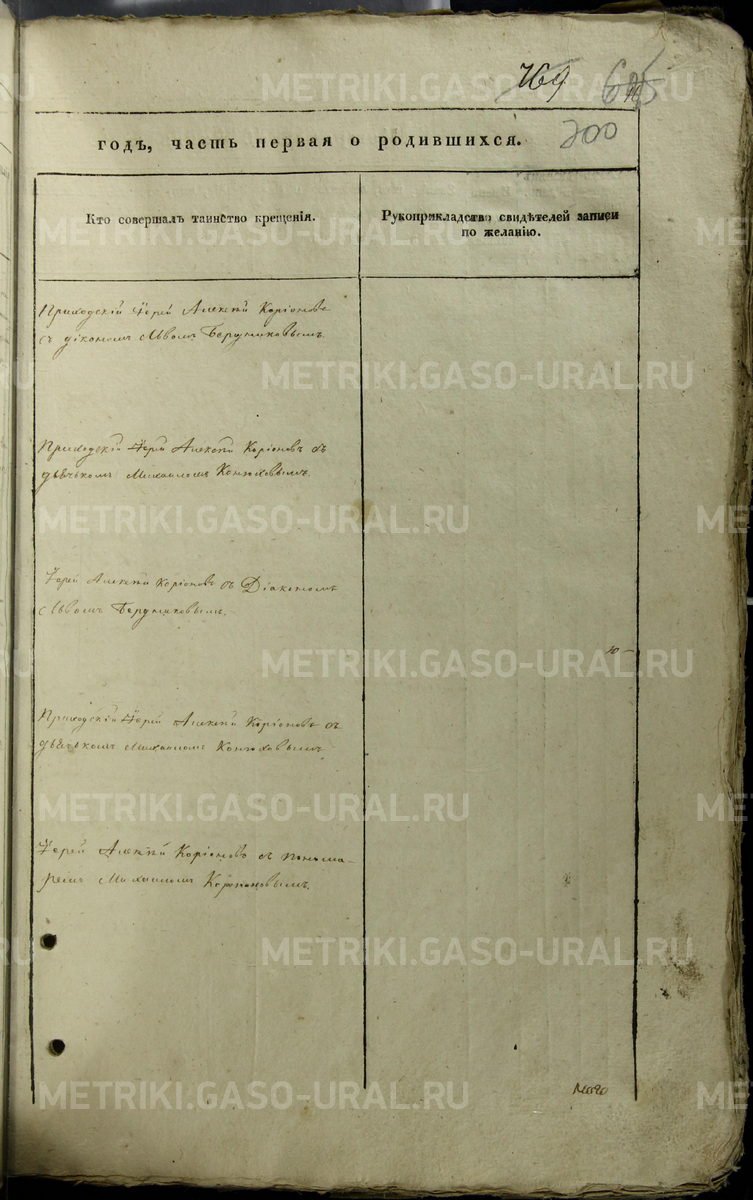 769
200
годъ, часть первая о родившихся.
Кто совершалъ таинство крещенія.
Рукоприкладство свидѣтелей записи
по желанію.
Приходскій Іерей Алексѣй Коріоновъ
съ дікономъ Львомъ
Приходскій Іерей Алексѣй Коріоновъ съ
дьячькомъ Михаиломъ Конюховымъ.
Іерей Алексѣй Коріоновъ съ Діакономъ
Львомъ
Приходскій Іерей Алексѣй Коріоновъ съ
дьячькомъ Михаиломъ Конюховымъ
Іерей Алексѣй Коріоновъ съ понома-
ремъ Михаиломъ
METRIKI.GASO-URAL.RU